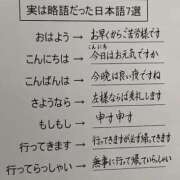 実は略語だった日本語7選
おはよう → お早くからご苦労様です
こんにちは → 今日はお元気ですか
こんにち
こんばんは → 今晩は良い夜ですね
さようなら → 左様ならば失礼します
もしもし → 申す申す
行ってきます → 行ってきますが必ず帰ってきます
行ってらっしゃい → 無事に行って帰っていらっしゃい